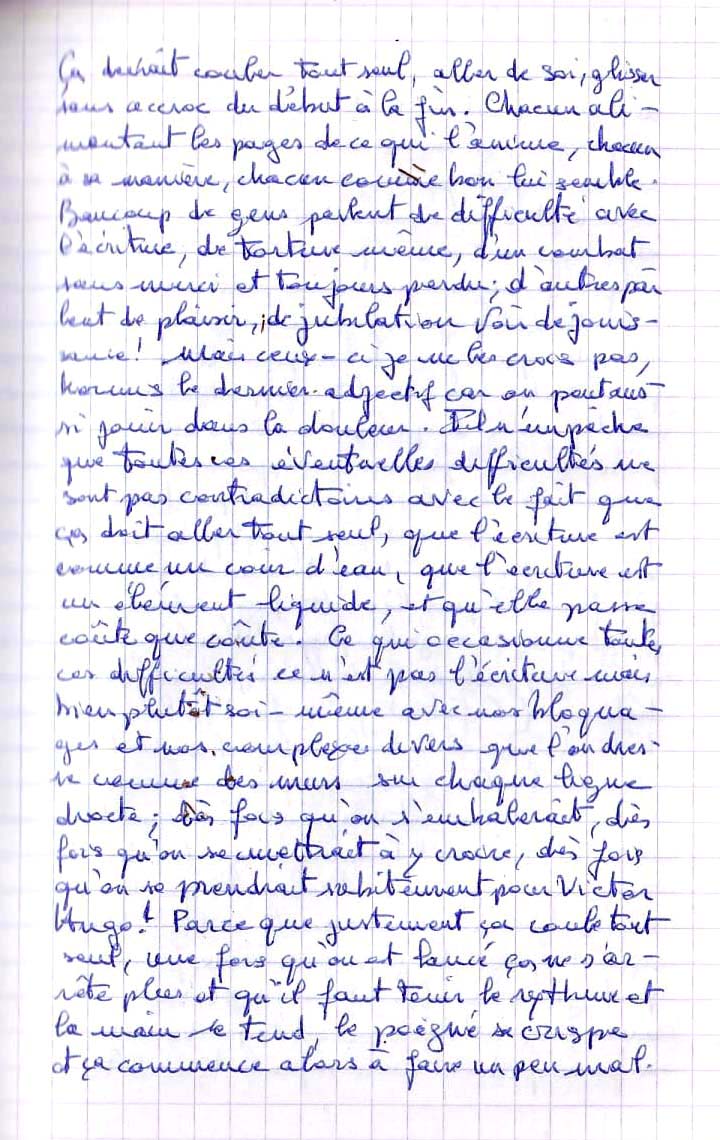 Ça devrait couler tout seul, aller de soi, glisser
sans accroc du début à la fin. Chacun ali-
mentant les pages de ce qui l'anime, chacun
à sa manière, chacun comme bon lui semble.
Beaucoup de gens parlent de difficulté avec
l'écriture, de torture même, d'un combat
sans merci et toujours perdu; d'autres par
lent de plaisir, de jubilation voir de jouis-
sance! Mais ceux-ci je ne les crois pas,
hormis le dernier adjectif car on peut aus-
si jouir dans la douleur. Il n'empêche
que toutes ces éventuelles difficultés ne
sont pas contradictoires avec le fait que
ça doit aller tout seul, que l'écriture est
comme un cour d'eau, que l'écriture est
un élément liquide, et qu'elle passe
coûte que coûte. Ce qui occasionne toutes
ces difficultés ce n'est pas l'écriture mais
bien plutôt soi-même avec nos bloqua-
ges et nos complexes divers que l'on dres-
se comme des murs sur chaque ligne
droite; dès fois qu'on s'emballerait, dès
fois qu'on se mettrait à y croire, dès fois
qu'on se prendrait subitement pour Victor
Hugo! Parce que justement ça coule tout
seul, une fois qu'on est lancé ça ne s'ar-
rête plus et qu'il faut tenir le rythme et
la main se tend, le poigné se crispe
et ça commence alors à faire un peu mal.